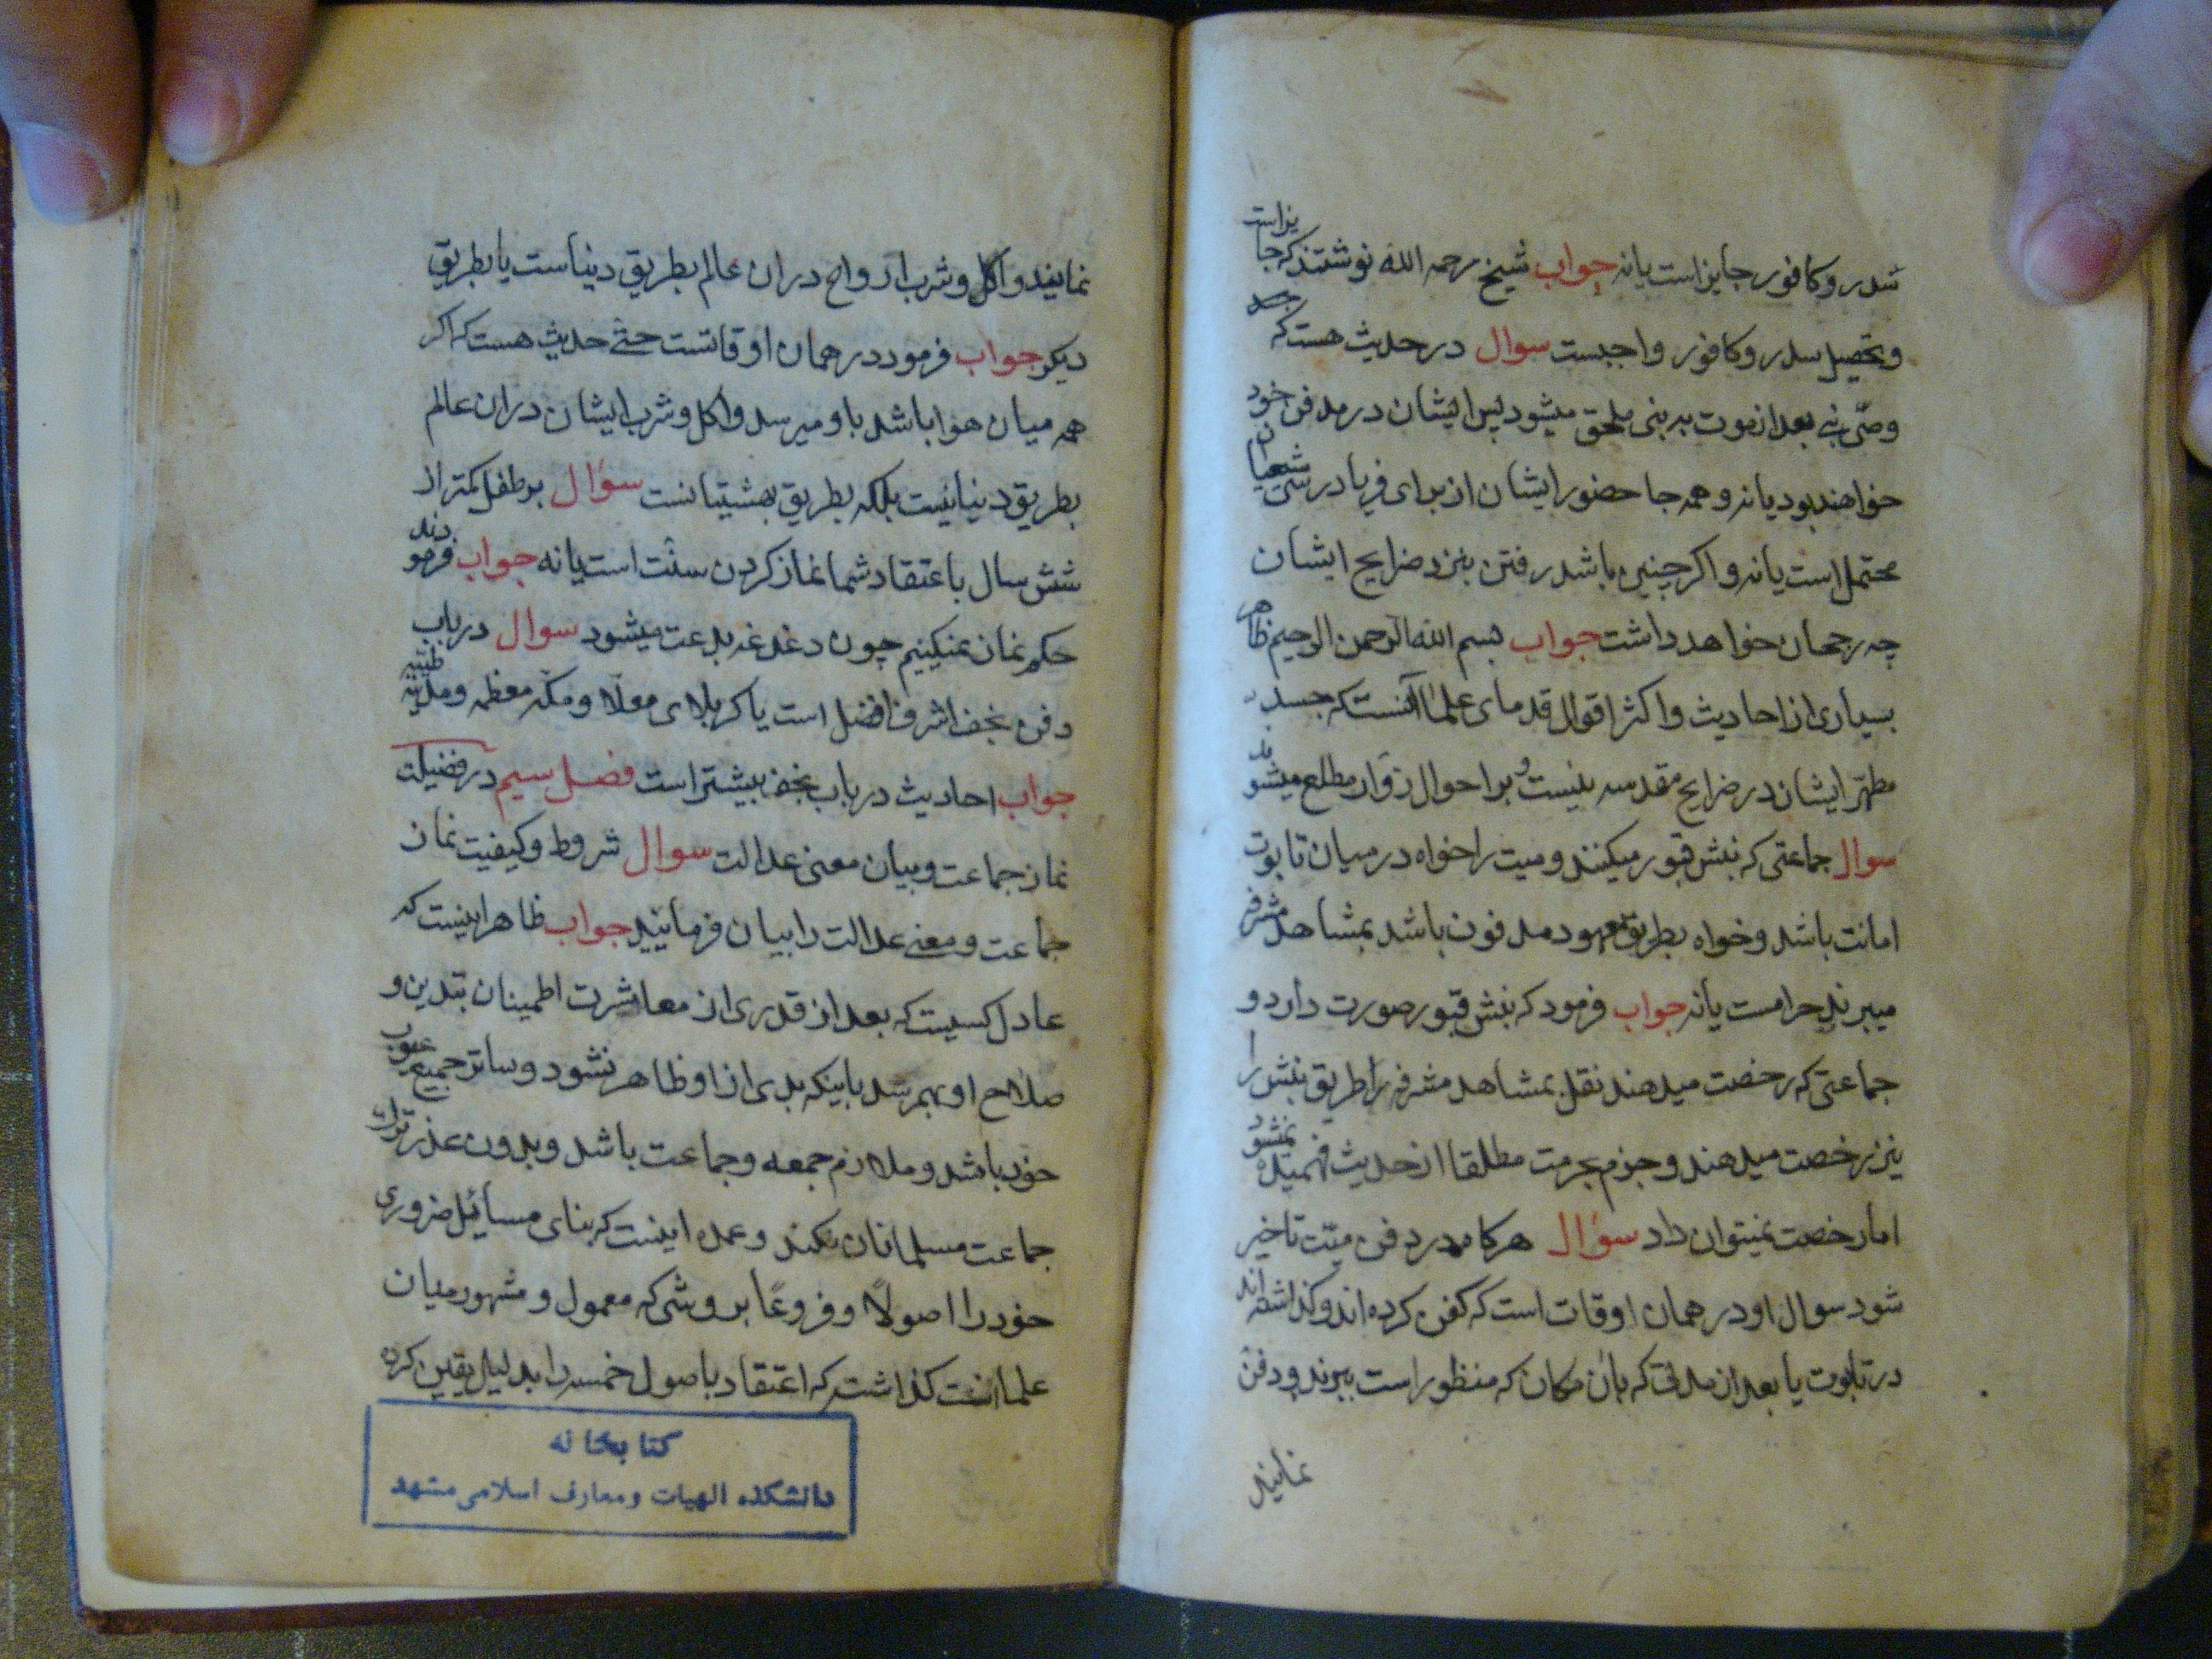 سدر و کافور جایز است یا نه جواب شیخ رحمه الله نوشتند که جایز است
و تحصیل سدر و کافور واجبست سوال در حدیث هست که جسد
وصی نبی بعد از موت به نبی ملحق میشود پس ایشان در مدفن خود
خواهند بود یا نه و همه جا حضور ایشان از برای فریادرسی شیعیان
محتمل است یا نه و اکر چنین باشد رفتن بنزد ضرایح ایشان
چه رجحان خواهد داشت جواب بسم الله الرحمن الرحیم ظاهر
بسیاری از احادیث و اکثر اقوال قدمای علما آنست که جسد
مطهر ایشان در ضرایح مقدسه نیست و بر احوال زوار مطلع میشوند
سوال جماعتی که نبش قبور میکنند و میت را خواه در میان تابوت
امانت باشد و خواه بطریق معهود مدفون باشد بمشاهد مشرفه
میبرند حرامست یا نه جواب فرمود که نبش قبور صورت دارد و
جماعتی که رخصت میدهند نقل بمشاهد مشرفه را طریق نبش را
نیز رخصت میدهند و جزم بحرمت مطلقا از حدیث فهمیده نمیشود
اما رخصت نمیتوان داد سؤال هرکاه در دفن میت تاخیر
شود سوال او در همان اوقات است که کفن کرده اند و کذاشته اند
در تابوت یا بعد از مدتی که بان مکان که منظور است ببرند و دفن
نمایند
نمایند و اکل و شرب ارواح در ان عالم بطریق دنیاست یا بطریق
دیکر جواب فرمود در همان اوقاتست حتی حدیث هست که اکر
همه میان هوا باشد باو میرسد و اکل و شرب ایشان در ان عالم
بطریق دنیا نیست بلکه بطریق بهشتیانست سؤال بر طفل کمتر از
شش سال باعتقاد شما نماز کردن سنت است یا نه جواب فرمودند
حکم نماز نمیکنیم چون دغدغه بدعت میشود سوال در باب
دفن نجف اشرف افضل است یا کربلای معلا و مکه معظمه و مدینه طیبه
جواب احادیث در باب نجف بیشتر است فصل سیم در فضیلت
نماز جماعت و بیان معنی عدالت سوال شروط و کیفیت نماز
جماعت و معنی عدالت را بیان فرمایید جواب ظاهر اینست که
عادل کسیست که بعد از قدری از معاشرت اطمینان بتدین و
صلاح او بهم رسد باینکه بدی از او ظاهر نشود و ساتر جمیع عیوب
خود باشد و ملازم جمعه و جماعت باشد و بدون عذر ترک
جماعت مسلمانان نکند و عمده اینست که بنای مسائیل ضروری
خود را اصولا و فروعًا بر وشی که معمول و مشهور میان
علما انست کذاشته که اعتقاد باصول خمسه را بدلیل یقین کرده
کتابخانه
دانشکده الهیات و معارف اسلامی مشهد